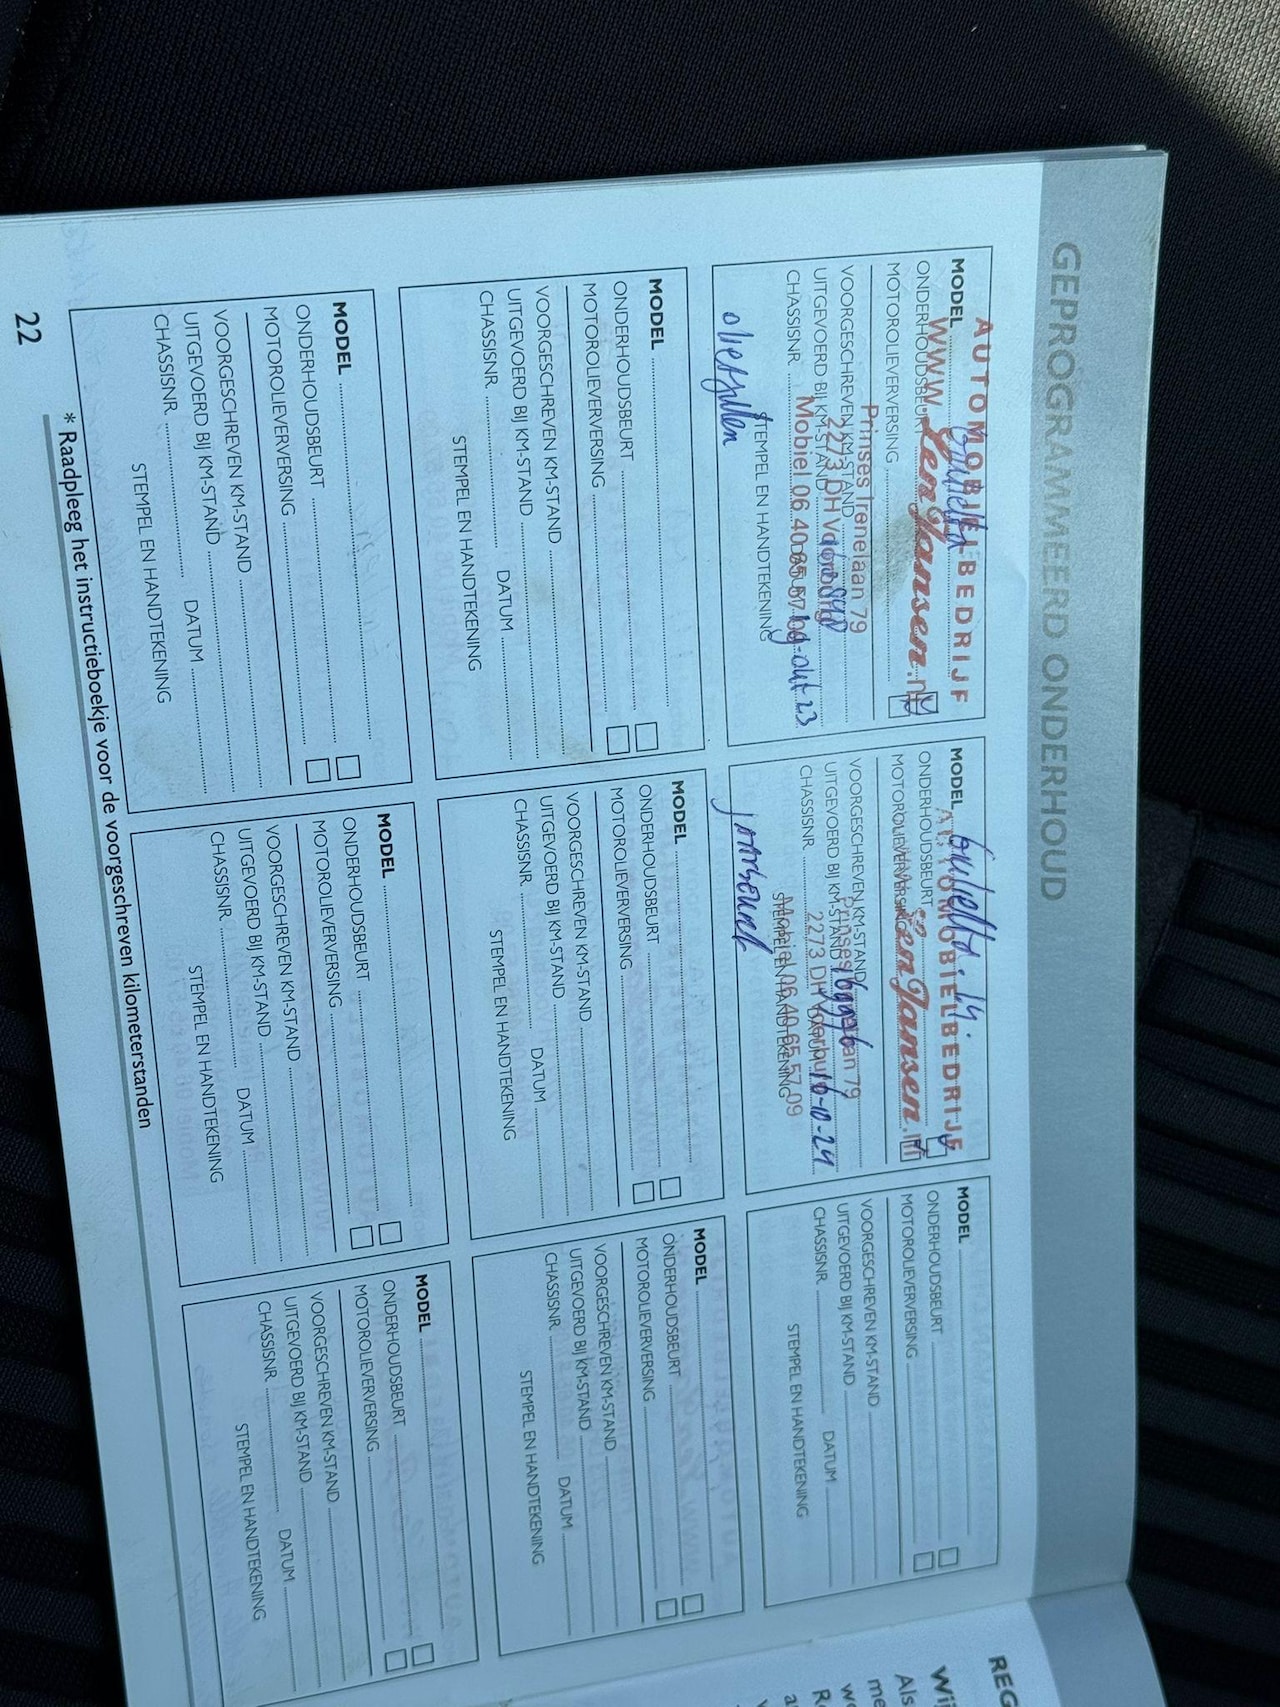 GEPROGRAMMEERD ONDERHOUD
AUTOMOBIELBEDRIJF
MODEL Giulietta
www.LenJansen.nl
ONDERHOUDSBEURT
MOTOROLIEVERVERSING
Prinses Irenelaan 79
VOORGESCHREVEN KM-STAND
2273 DH Voorburg
UITGEVOERD BIJ KM-STAND
Mobiel 06 40 65 57 09
CHASSISNR. DATUM
STEMPEL EN HANDTEKENING
MODEL Giulietta
AUTOMOBIELBEDRIJF
ONDERHOUDSBEURT
MOTOROLIEVERVERSING
LenJansen.nl
VOORGESCHREVEN KM-STAND
Prinses 79
UITGEVOERD BIJ KM-STAND
2273 DH Voorburg
CHASSISNR. DATUM 16-10-24
Mobiel 06 40 65 57 09
STEMPEL EN HANDTEKENING
jaarbeurt
MODEL
ONDERHOUDSBEURT
MOTOROLIEVERVERSING
VOORGESCHREVEN KM-STAND
UITGEVOERD BIJ KM-STAND
CHASSISNR. DATUM
STEMPEL EN HANDTEKENING
MODEL
ONDERHOUDSBEURT
MOTOROLIEVERVERSING
VOORGESCHREVEN KM-STAND
UITGEVOERD BIJ KM-STAND
CHASSISNR. DATUM
STEMPEL EN HANDTEKENING
MODEL
ONDERHOUDSBEURT
MOTOROLIEVERVERSING
VOORGESCHREVEN KM-STAND
UITGEVOERD BIJ KM-STAND
CHASSISNR. DATUM
STEMPEL EN HANDTEKENING
MODEL
ONDERHOUDSBEURT
MOTOROLIEVERVERSING
VOORGESCHREVEN KM-STAND
UITGEVOERD BIJ KM-STAND
CHASSISNR. DATUM
STEMPEL EN HANDTEKENING
MODEL
ONDERHOUDSBEURT
MOTOROLIEVERVERSING
VOORGESCHREVEN KM-STAND
UITGEVOERD BIJ KM-STAND
CHASSISNR. DATUM
STEMPEL EN HANDTEKENING
MODEL
ONDERHOUDSBEURT
MOTOROLIEVERVERSING
VOORGESCHREVEN KM-STAND
UITGEVOERD BIJ KM-STAND
CHASSISNR. DATUM
STEMPEL EN HANDTEKENING
MODEL
ONDERHOUDSBEURT
MOTOROLIEVERVERSING
VOORGESCHREVEN KM-STAND
UITGEVOERD BIJ KM-STAND
CHASSISNR. DATUM
STEMPEL EN HANDTEKENING
* Raadpleeg het instructieboekje voor de voorgeschreven kilometerstanden
22
REG
Als